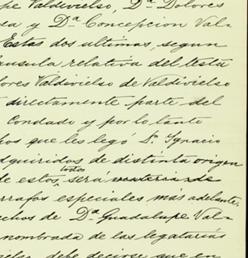 pe Valdivielso, Dª Dolores
sa y Dª Concepcion Val-
Estas dos ultimas, segun
ausula relativa del testa
lores Valdivielso de Valdivielso
directamente parte del
Condado y por lo tanto
hos que les legó Sr. Ignacio
dquiridos de distinta origen
de estos todos será materia de
rrafos especiales más adelante
echos de Dª Guadalupe Val-
nombrada de las legatarias
ielso, debe decirse que en